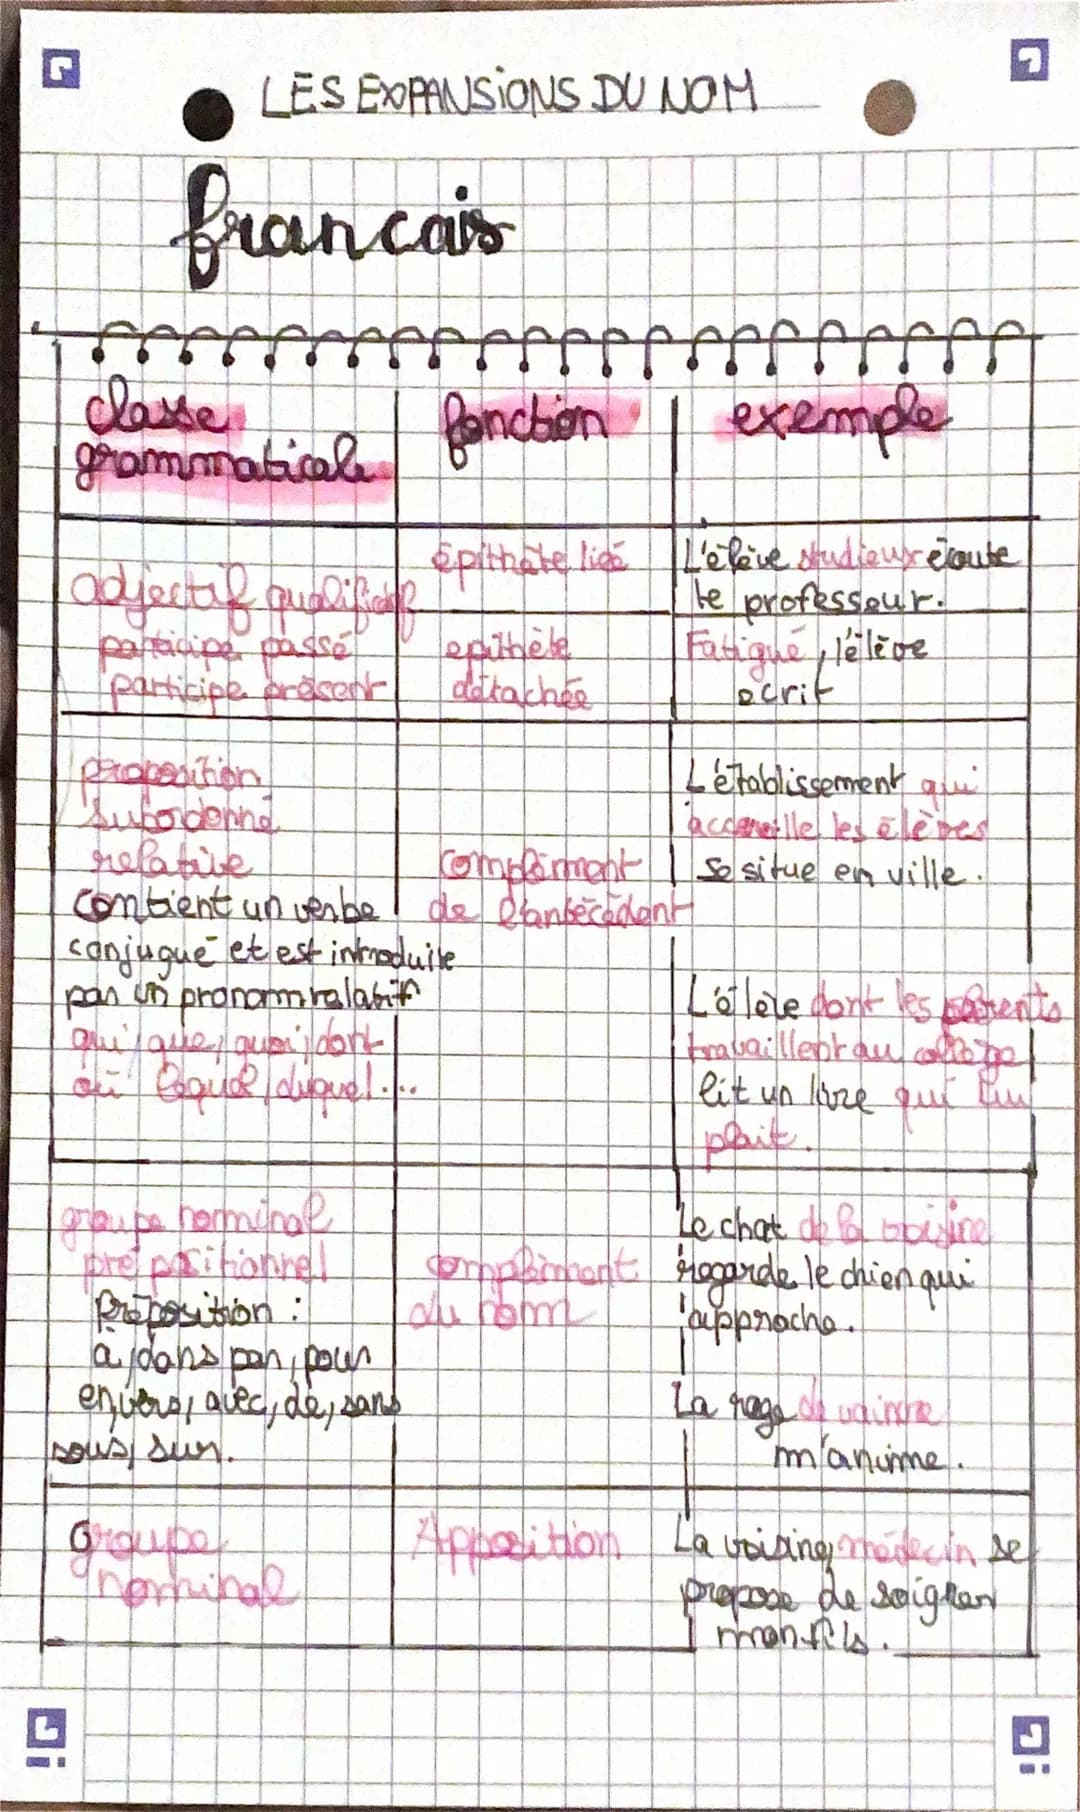 LES EXPANSIONS DU NOM
francais
classe
grammaticale
fonction
exemple
adjectif qualificatif
participe passé
participe présent
épithète liée
L'élève studieux écoute
le professeur.
epithète
détachée
Fatigué, l'élève
ecrit
proposition
subordonné
relative
contient un verbe
conjugué et est introduite
par un pronom relatif
qui, que, quoi, dont
où lequel, duquel...
complément
de l'antécédent
L'établissement qui
accueille les élèves
se situe en ville.
L'élève dont les parents
travaillent au collège
lit un livre qui lui
plait.
groupe nominal
prépositionnel
préposition :
à, dans par, pour
en, vers, avec, de, sans
sous, sur.
complément
du nom
Le chat de la voisine
regarde le chien qui
s'approche.
La rage de vaincre
m'anime.
Groupe
nominal
Apposition
La voisine, médecin se
propose de soigner
mon fils.